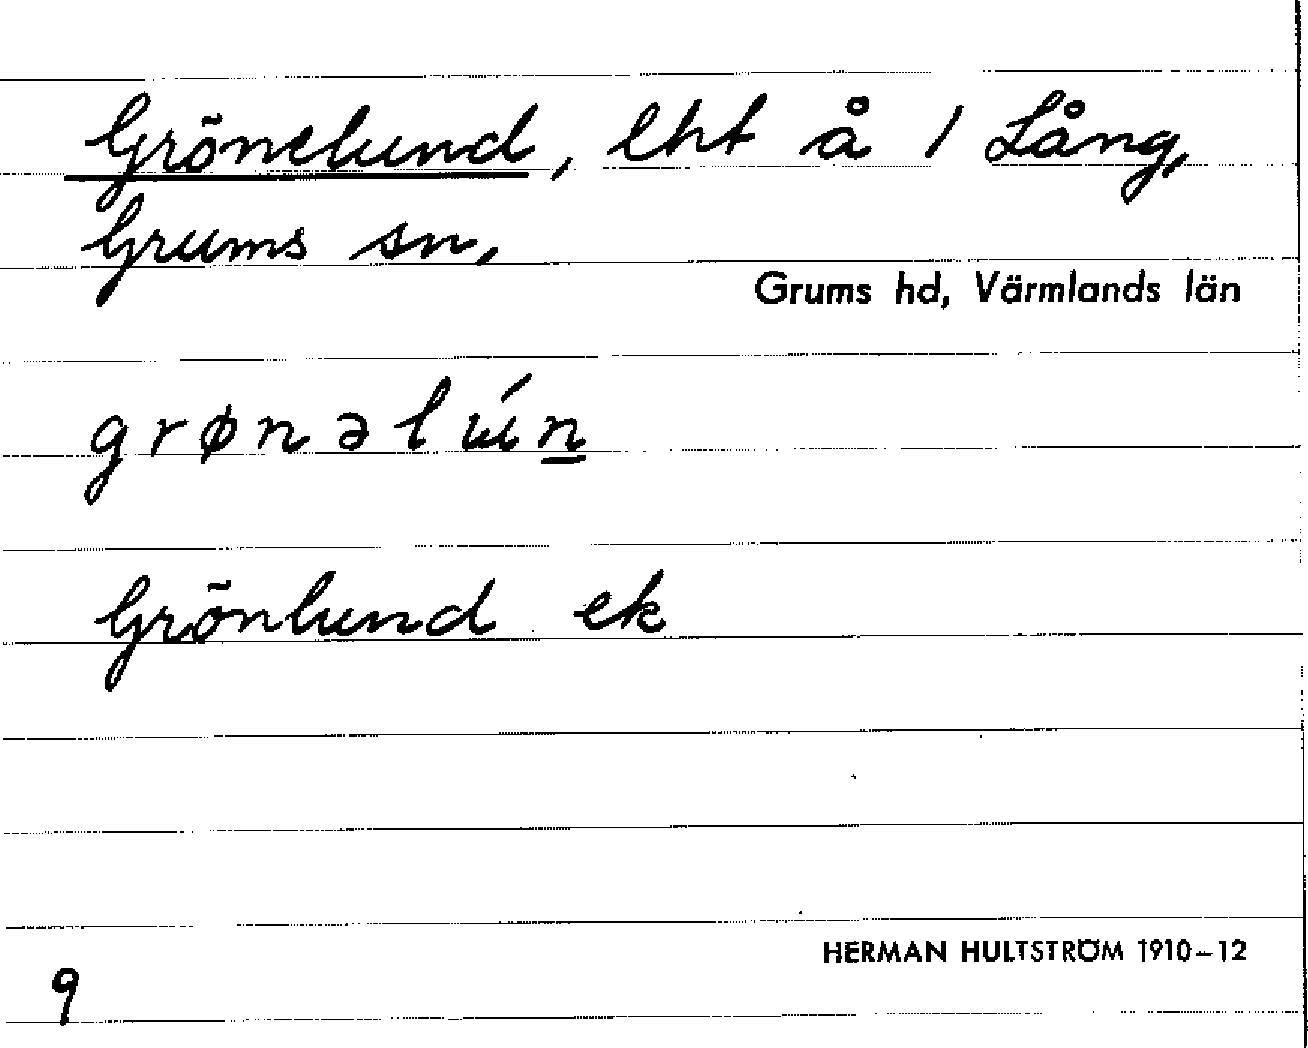 Grönelund, lht å 1 Lång,
Grums sn,
Grums hd, Värmlands län
grønəlún̲
Grönlund ek
HERMAN HULTSTRÖM 1910–12
9